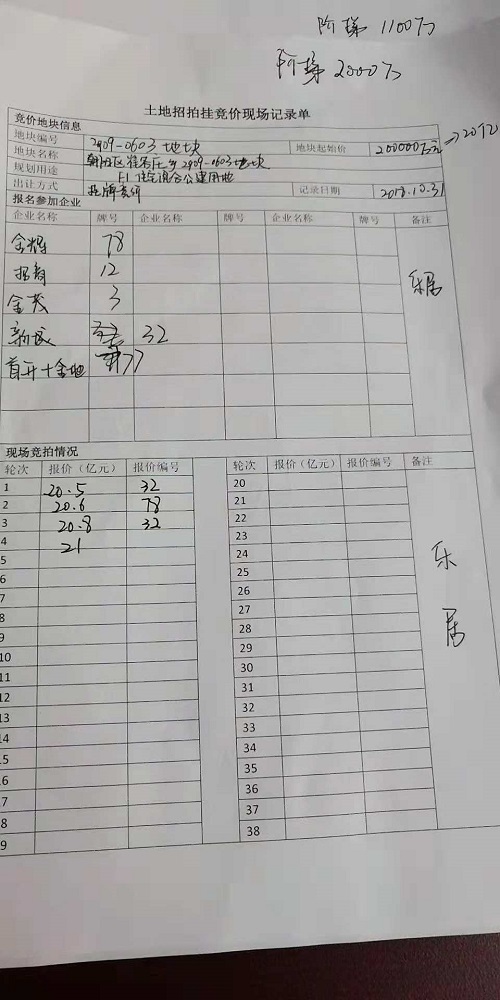 阶梯 1100万
阶梯 2000万
土地招拍挂竞价现场记录单
竞价地块信息
地块编号 2909-0603 地块 地块起始价 200000万元 →20亿
地块名称 朝阳区崔各庄乡2909-0603地块
规划用途 F1 住宅混合公建用地
出让方式 挂牌竞价 记录日期 2018.10.31
报名参加企业
企业名称 牌号 企业名称 牌号 企业名称 牌号 备注
金辉 78
招商 12
乐居
金茂 3
新城 32
首开+金地 77
现场竞拍情况
轮次 报价（亿元） 报价编号 轮次 报价（亿元） 报价编号 备注
1 20.5 32 20
2 20.6 78 21
3 20.8 32 22
4 21 23
5 24
6 25
7 26
8 27
9 28
10 29
11 30
12 31
13 32
14 33
15 34
16 35
17 36
18 37
19 38
乐
居